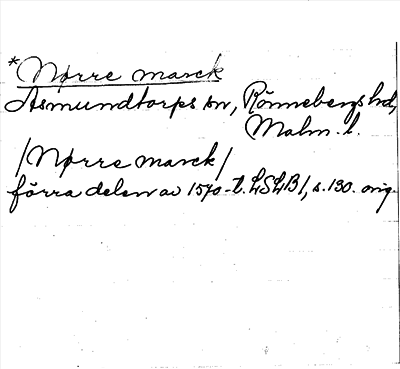 *Nørre marck
Asmundtorps sn, Rönnebergs hd,
Malm. l.
/Nørre marck/
förra delen av 1570-t. LSLB 1, s. 130. orig.